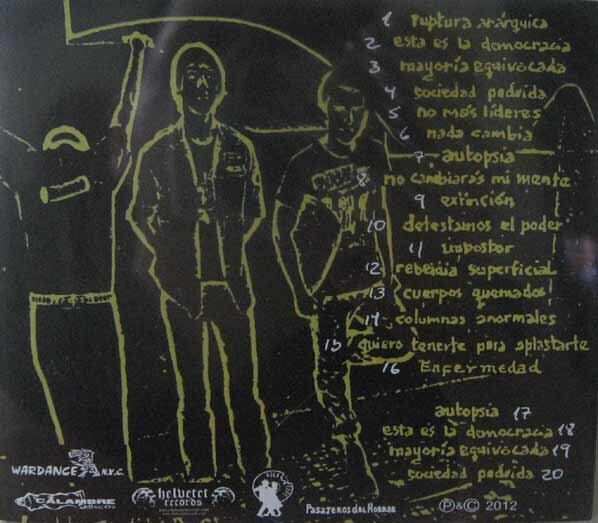 1 ruptura anárquica
2 esta es la democracia
3 mayoría equivocada
4 sociedad podrida
5 no más líderes
6 nada cambia
7 autopsia
8 no cambiarás mi mente
9 extinción
10 detestamos el poder
11 impostor
12 rebeldía superficial
13 cuerpos quemados
14 columnas anormales
15 quiero tenerte para aplastarte
16 Enfermedad
autopsia 17
esta es la democracia 18
mayoría equivocada 19
sociedad podrida 20
WARDANCE N.Y.C.
CALAMBRE discos
helvetet records
PASAJEROS DEL HORROR
P & C 2012